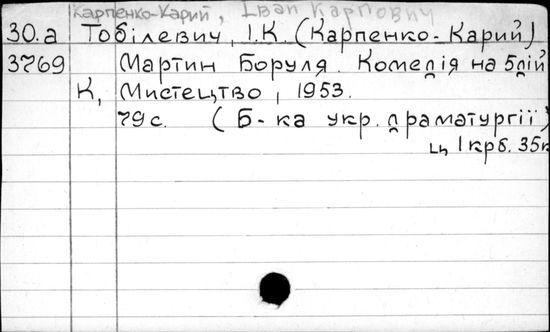 Карпенко-Карий, Іван Карпович
30.а Тобілевич, І.К. (Карпенко-Карий)
3769 Мартин Боруля. Комедія на 5 дій
К, Мистецтво, 1953.
79 с. (Б-ка укр. драматургії)
Ц 1 крб. 35к